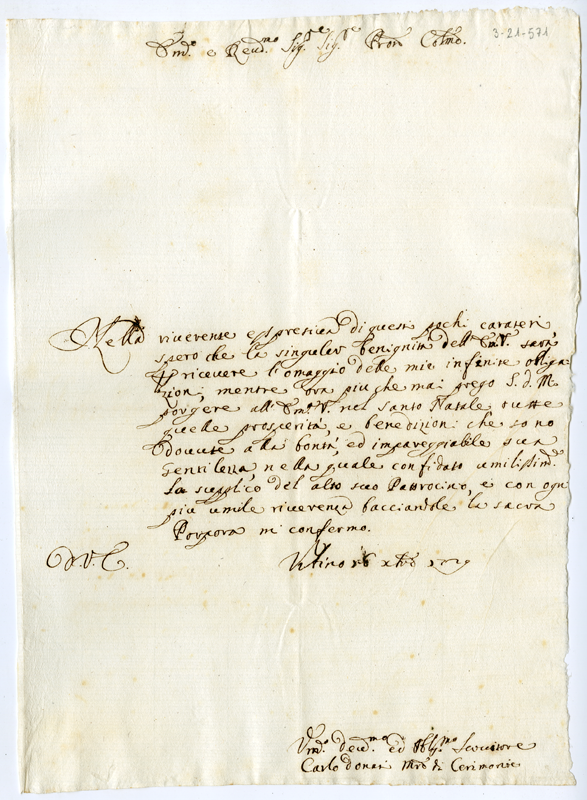 Em.º e Reud.mo Sig.re Sig.re Pron Colmo.
3-21-571
Nella riuerente espressiua di questi pochi carateri,
spero che la singular benignità dell'Em.V. sarà
p riceuere l'omaggio delle mie infinite obliga
zioni, mentre ora più che mai prego S.d.M.
porgere all'Em.V. nel Santo Natale tutte
quelle prosperità, e benedizioni che sono
douute alla bontà, ed impareggiabile sua
Gentilezza, nella quale confidato umilissim.
La supplico del alto suo Patrocino, e con ogni
più umile riuerenza bacciandole la sacra
Porpora mi confermo.
D.V.E.
Urbino 16 xbre 1719
Um.º deud.mo ed Obbg.mo Seruitore
Carlo Donati Mro di Cerimonie